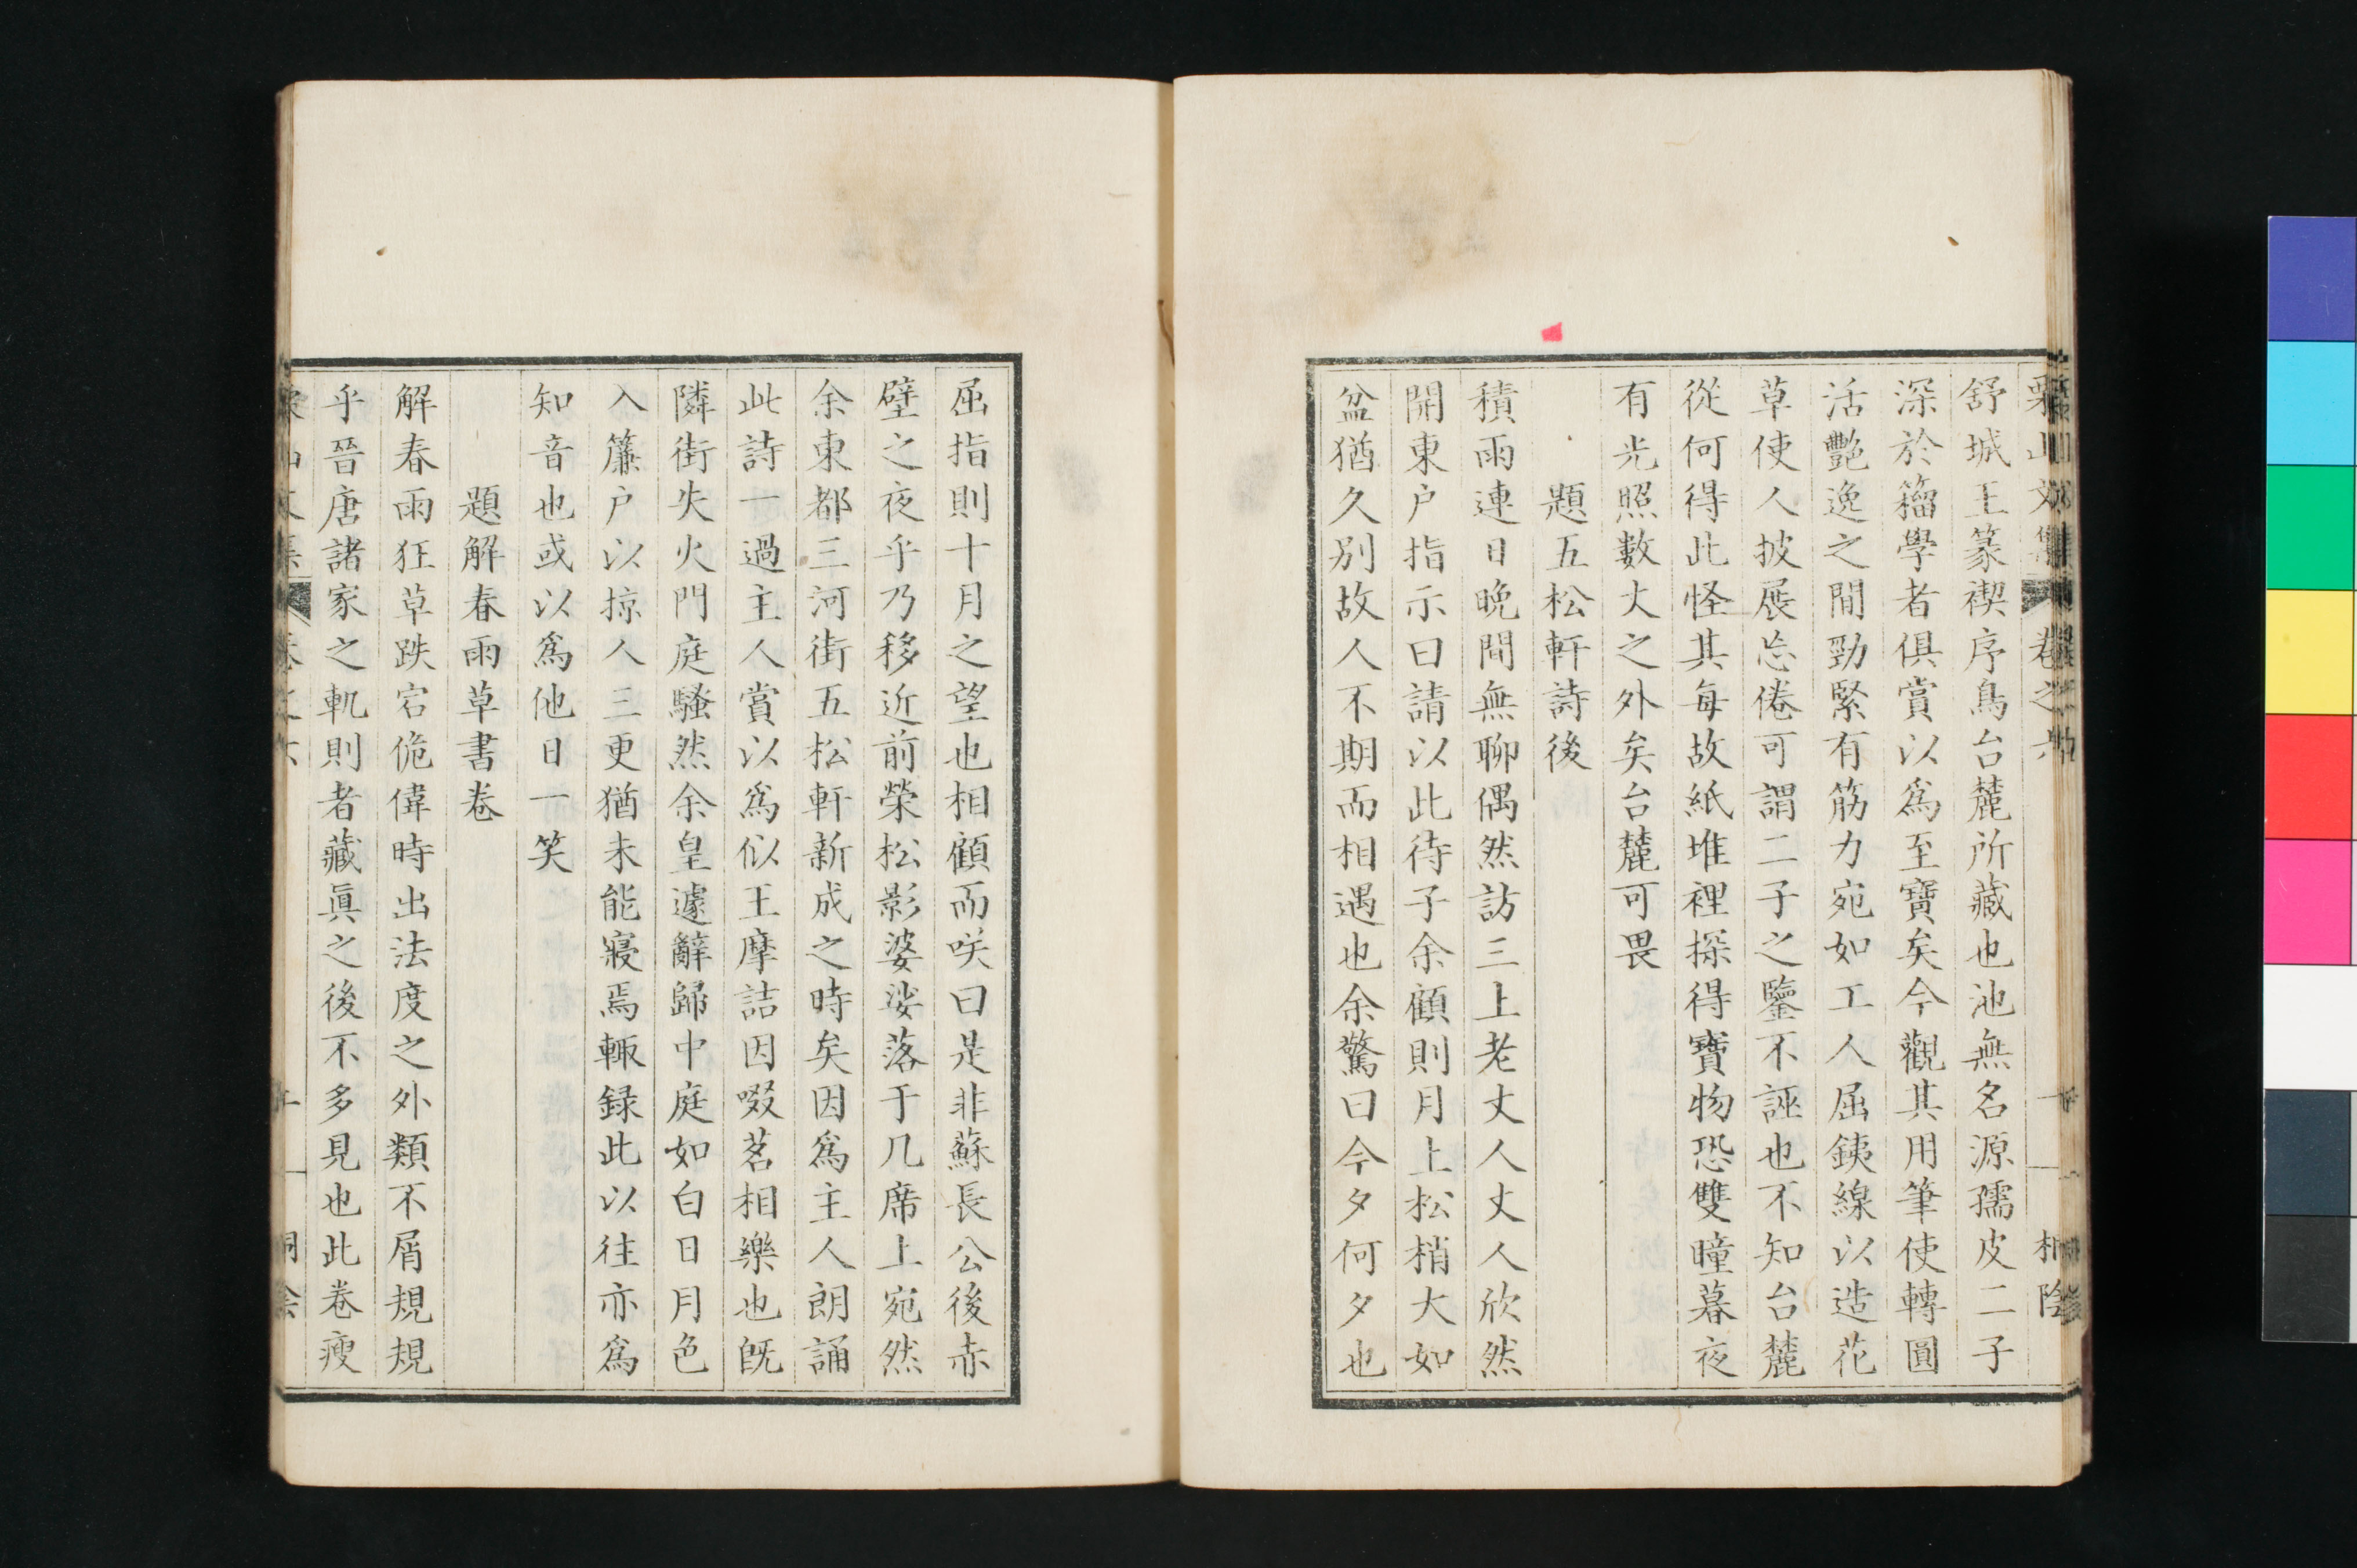 舒城王篆禊序鳥台麓所藏也池無名源孺皮二子
深於籀學者俱賞以爲至寶矣今觀其用筆使轉圓
活艷逸之間勁緊有筋力宛如工人屈銕線以造花
草使人披展忘倦可謂二子之鑒不誣也不知台麓
從何得此怪其每故紙堆裡探得寶物恐雙瞳暮夜
有光照數丈之外矣台麓可畏
題五松軒詩後
積雨連日晩間無聊偶然訪三上老丈人丈人欣然
開東户指示曰請以此待子余顧則月上松梢大如
盆猶久別故人不期而相遇也余驚曰今夕何夕也
屈指則十月之望也相顧而咲曰是非蘇長公後赤
壁之夜乎乃移近前榮松影婆娑落于几席上宛然
余東都三河街五松軒新成之時矣因爲主人朗誦
此詩一過主人賞以爲似王摩詰因啜茗相樂也既
隣街失火門庭騷然余皇遽辭歸中庭如白日月色
入簾户以掠人三更猶未能寢焉輙録此以往亦爲
知音也或以爲他日一笑
題解春雨草書卷
解春雨狂草跌宕佹偉時出法度之外類不屑規規
乎晉唐諸家之軌則者藏眞之後不多見也此卷瘦